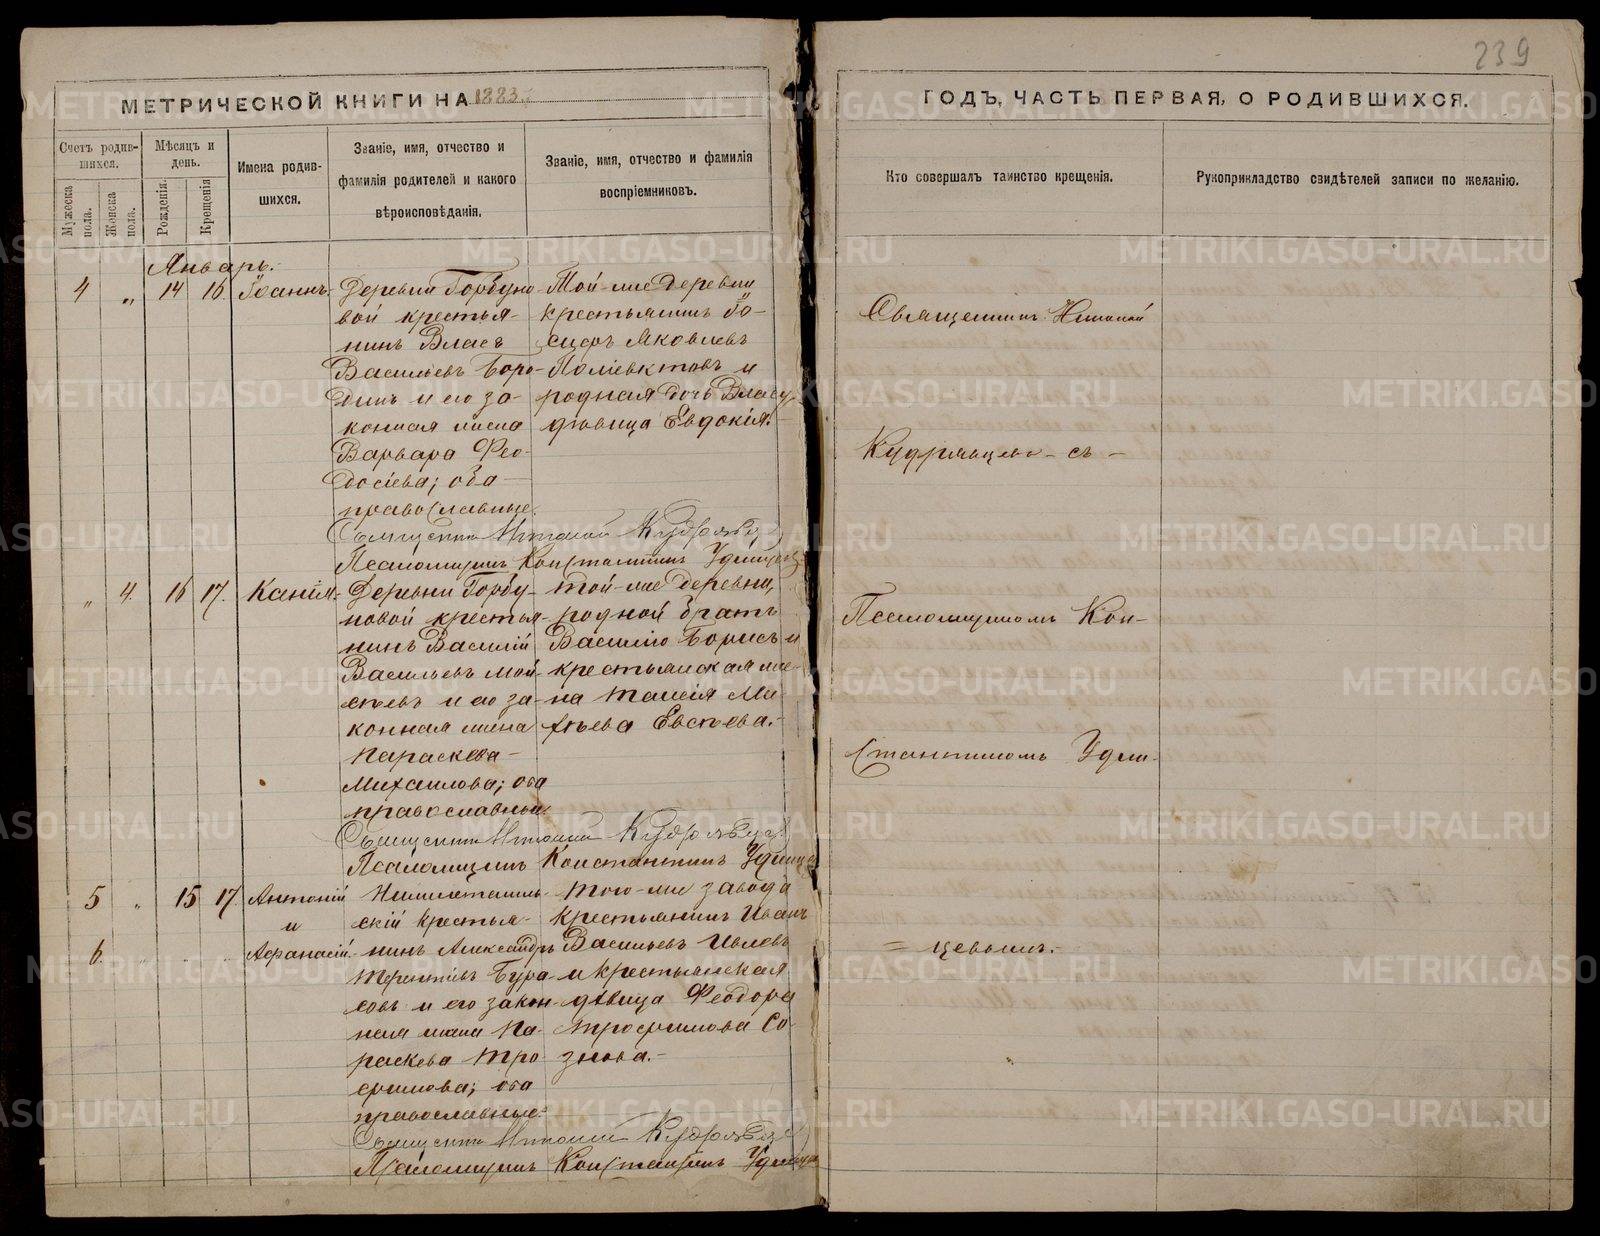 239
МЕТРИЧЕСКОЙ КНИГИ НА 1883.
ГОДЪ, ЧАСТЬ ПЕРВАЯ, О РОДИВШИХСЯ.
Счетъ родившихся.
Мужеска пола.
Женска пола.
Мѣсяцъ и день.
Рожденія.
Крещенія
Имена родившихся.
Званіе, имя, отчество и фамилія родителей и какого вѣроисповѣданія.
Званіе, имя, отчество и фамилія воспріемниковъ.
Кто совершалъ таинство крещенія.
Рукоприкладство свидѣтелей записи по желанію.
Январь.
4 „ 14 16. Іоаннъ.
Деревни Горбуно-
вой крестья-
нинъ Власъ
Васильевъ Боро-
динъ и его за-
конная жена
Варвара Ѳео-
досіева; оба
православные.
Той-же деревни
крестьянинъ Іо-
сифъ Яковлевъ
Поліевктовъ и
родная дочь Власу,
дѣвица Евдокія.
Священникъ Николай
Кудрявцевъ съ
Псаломщикъ Константинъ
„ 4. 16 17.
Деревни Горбу-
новой крестья-
нинъ Василій
Васильевъ
и его за-
конная жена
Параскева
Михаилова; оба
православные.
той-же деревни,
родной братъ
Василію Борисъ и
крестьянская же-
на Таисія
Евсѣева.
Псаломщикомъ Кон-
стантиномъ
Псаломщикъ Константинъ
5 „ 15 17 Антоній
и
6. Аѳанасій.
скій крестья-
нинъ Александръ
Терентьевъ
и его закон-
ная жена Па-
раскева Тро-
фимова; оба
православные.
того-же завода
крестьянинъ Иванъ
Васильевъ
и крестьянская
дѣвица Ѳеодора
Трофимова Со-
зонова.
= цевымъ.
Псаломщикъ Константинъ
METRIKI.GASO-URAL.RU